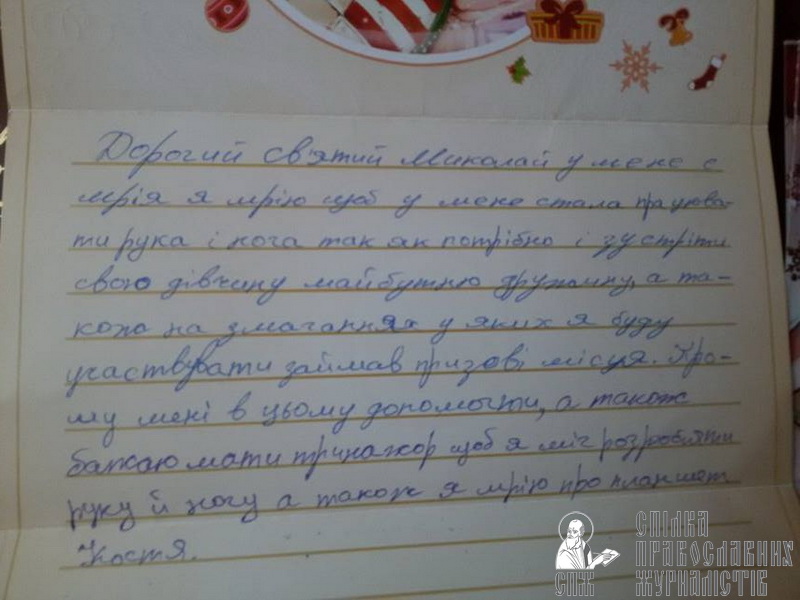 Дорогий св'ятий Миколай у мене є
мрія я мрію щоб у мене стала працюва-
ти рука і нога так як потрібно і зустріти
свою дівчину майбутню дружину, а та-
кожа на змаганнях у яких я буду
участвувати займав призові місця. Про-
шу мені в цьому допомогти, а також
бажаю мати тринажор щоб я міг розробляти
руку й ногу а також я мрію про планшет
Костя.
СПІЛКА
ПРАВОСЛАВНИХ
ЖУРНАЛІСТІВ
СПЖ